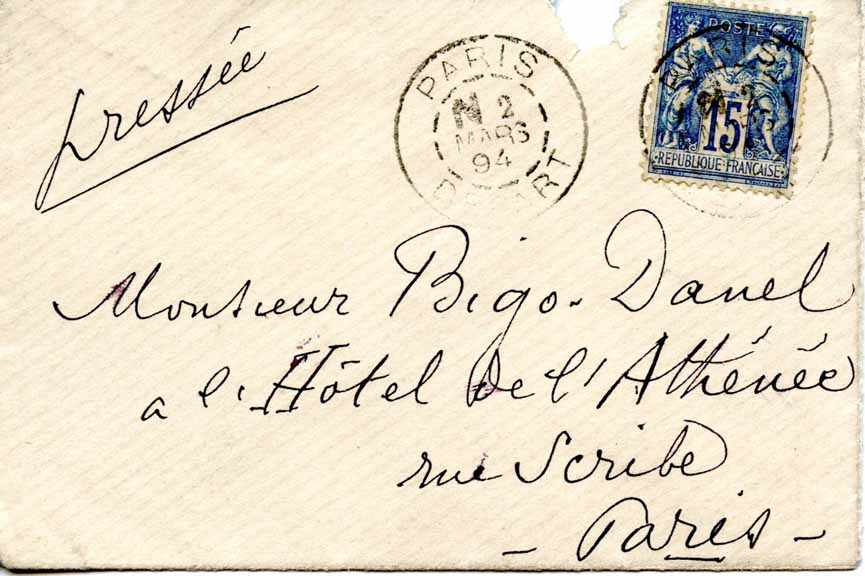 pressée
PARIS
N 2
MARS
94
DEPART
POSTE
PARIS
15
REPUBLIQUE FRANÇAISE
Monsieur Bigo-Danel
a l'Hôtel de l'Athénée
rue Scribe
- Paris -